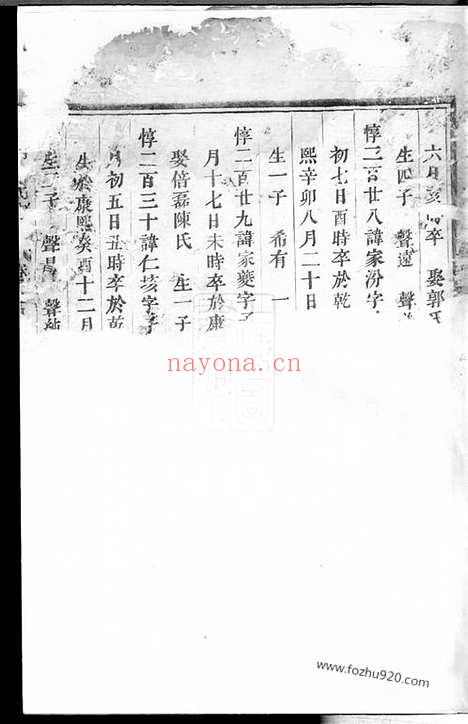 六月亥時卒 娶郭氏
生四子 聲遠 聲
惇二百廿八諱家汾字
初七日酉時卒於乾
熙辛卯八月二十日
生一子 希有 一
惇二百廿九諱家夔字
月十七日未時卒於康
娶倍磊陳氏 生一子
惇二百三十諱仁荄字子
月初五日丑時卒於乾
生於康熙癸酉十二月
生二子 聲昌 聲
nayona.cn
www.fozhu920.com